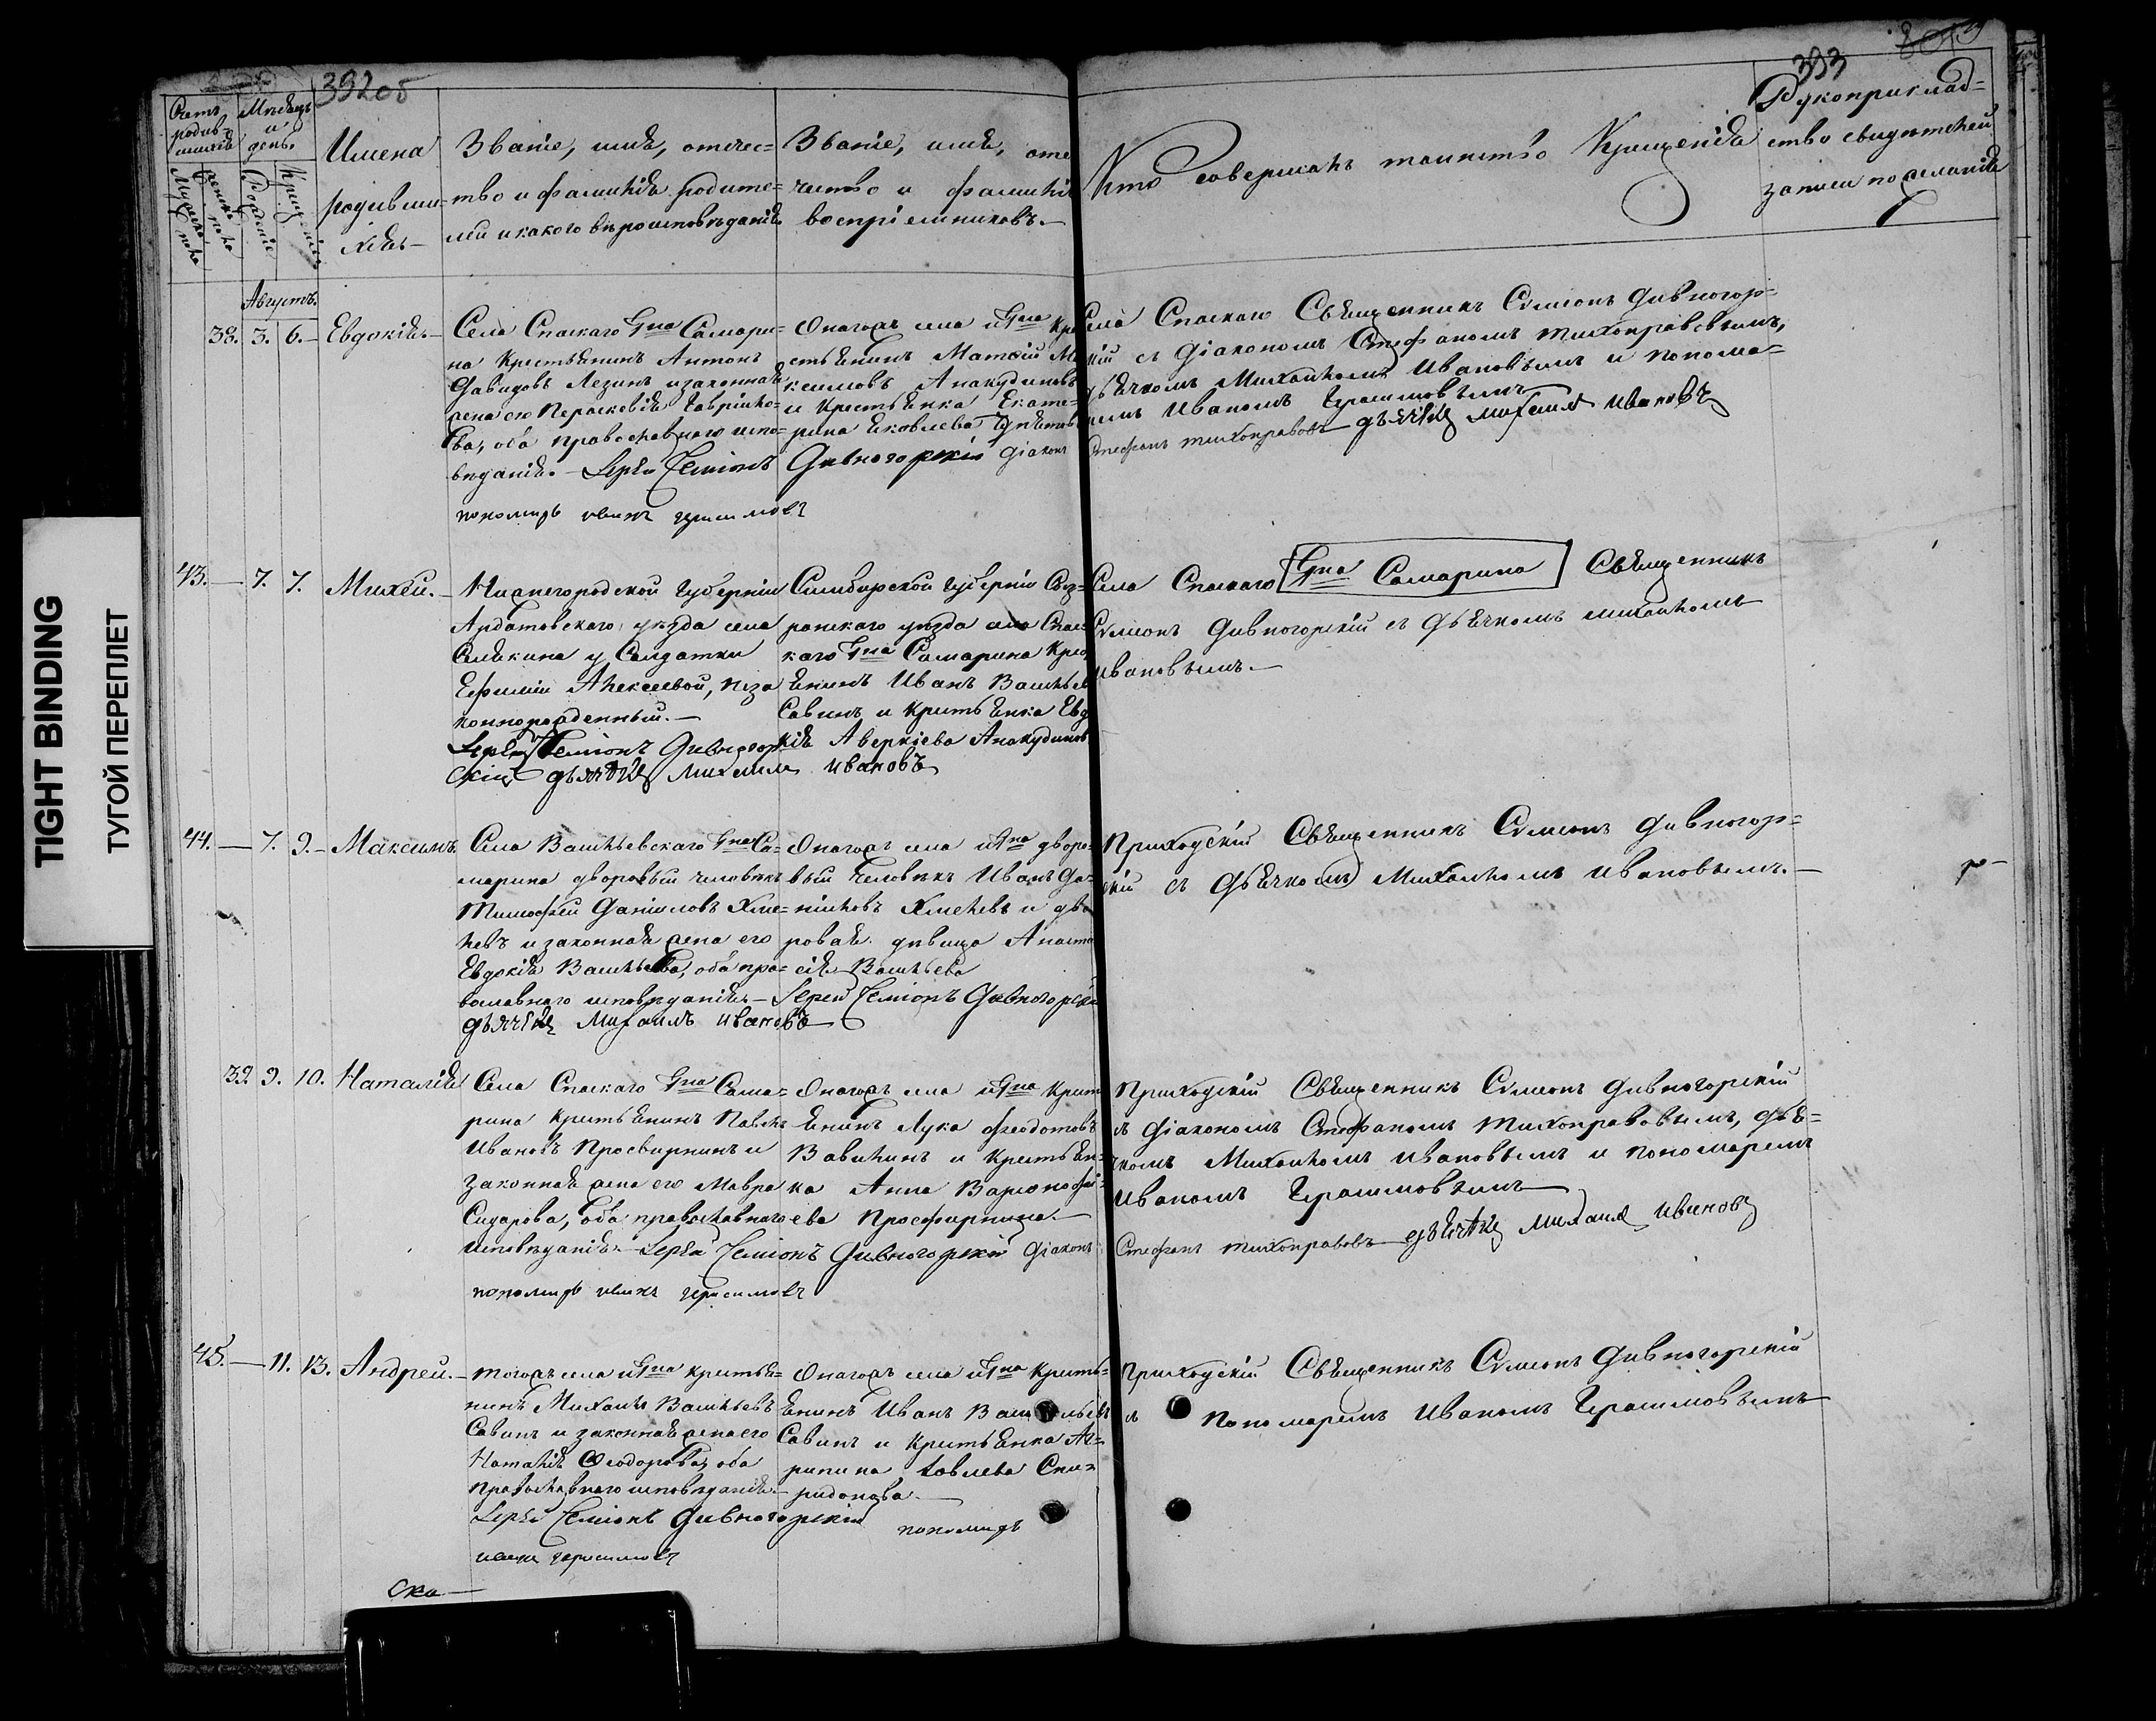 392 об
393
Счетъ родив-шихся
Мужеска пола
Женска пола
Мѣсяцъ и день
Рожденіе
Крещеніе
Имена родивши-хся
Званіе, имя, отчес-
тво и фамилія родите-
лей и какого вѣроисповѣданія
Званіе, имя, отче
чество и фамилія
воспріемниковъ.
Кто совершалъ таинство Крещенія
Рукоприклад-
ство свидѣтелей
записи по желанію
Августъ.
38. 3. 6. Евдокія.
Села Спаскаго Гна Самари-
на Крестьянинъ Антонъ
Давидовъ Лезинъ и законная
жена его Пераскевія Гаврило-
ва, оба православнаго испо-
вѣданія. Іерей Симеонъ Дивногорскій Діаконъ
пономарь иванъ герасимовъ
Онагожъ села и Гна Кре
стьянинъ Матѳій Ма
ксимовъ Анакудиновъ
и Крестьянка Екате-
рина Яковлева
Села Спаскаго Священникъ Сѵмеонъ Дивногор-
скій съ Діакономъ Стефаномъ Тихонравовымъ,
дьячкомъ Михаиломъ Ивановымъ и понома-
ремъ Иваномъ Герасимовымъ
Стефанъ Тихонравовъ дьячекъ михаилъ ивановъ
43. — 7. 7. Михей.
Нижегородской Губерніи
Ардатовскаго уѣзда села
Сиякина у Солдатки
Ефиміи Алексеевой, неза
коннорожденный.
Іерей Симеонъ Дивногор
скій дьячекъ Михаилъ ивановъ
Симбирской Губерніи Сыз-
ранскаго уѣзда села Спас
каго Гна Самарина Крес
янинъ Иванъ Васильев
Савинъ и крестьянка Евд
кія Аверкіева Анакудинов
Села Спаскаго Гна Самарина Священникъ
Сѵмеонъ Дивногорскій съ Дьячкомъ Михаиломъ
Ивановымъ.
44. — 7. 9. Максимъ.
Села Васильевскаго Гна Са-
марина дворовый человѣкъ
Тимофей Даниловъ Хме-
левъ и законная жена его
Евдокія Васильева, оба пра-
вославнаго исповѣданія. Іерей Симеонъ Дивногорскій
дьячекъ Михаилъ ивановъ
Онагожъ села и Гна дворо-
вый человѣкъ Иванъ Да-
ніиловъ Хмелевъ и дво
ровая дѣвица Анаста
сія Васильева
Приходскій Священникъ Сѵмеонъ Дивногор-
скій съ Дьячкомъ Михаиломъ Ивановымъ.
39. 9. 10. Наталія
Села Спаскаго Гна Сама-
рина крестьянинъ Павелъ
Ивановъ Просвирнинъ и
законная жена его Мавра
Сидарова, оба православнаго
исповѣданія. Іерей Симеонъ Дивногорскій Діаконъ
пономарь иванъ герасимовъ
Онагожъ села и Гна Крест
янинъ Лука Феодотовъ
Вавилинъ и Крестьян-
ка Анна Варфоломе-
ева Просфирнина.
Приходскій Священникъ Сѵмеонъ Дивногорскій
съ Діакономъ Стефаномъ Тихонравовымъ, дья-
чкомъ Михаиломъ Ивановымъ и пономаремъ
Иваномъ Герасимовымъ
Стефанъ Тихонравовъ дьячекъ михаилъ ивановъ
45. — 11. 13. Андрей.
Тогожъ села и Гна крестья-
нинъ Михаилъ Васильевъ
Савинъ и законная жена его
Наталія Ѳеодорова, оба
православнаго исповѣданія.
Іерей Симеонъ Дивногорскій пономарь
иванъ герасимовъ
Онагожъ села и Гна Кресть-
янинъ Иванъ Васильевъ
Савинъ и крестьянка Аг-
рипина Іовлева Спи-
ридонова.
Приходскій Священникъ Сѵмеонъ Дивногорскій
съ Пономаремъ Иваномъ Герасимовымъ
Ска—
TIGHT BINDING
ТУГОЙ ПЕРЕПЛЕТ